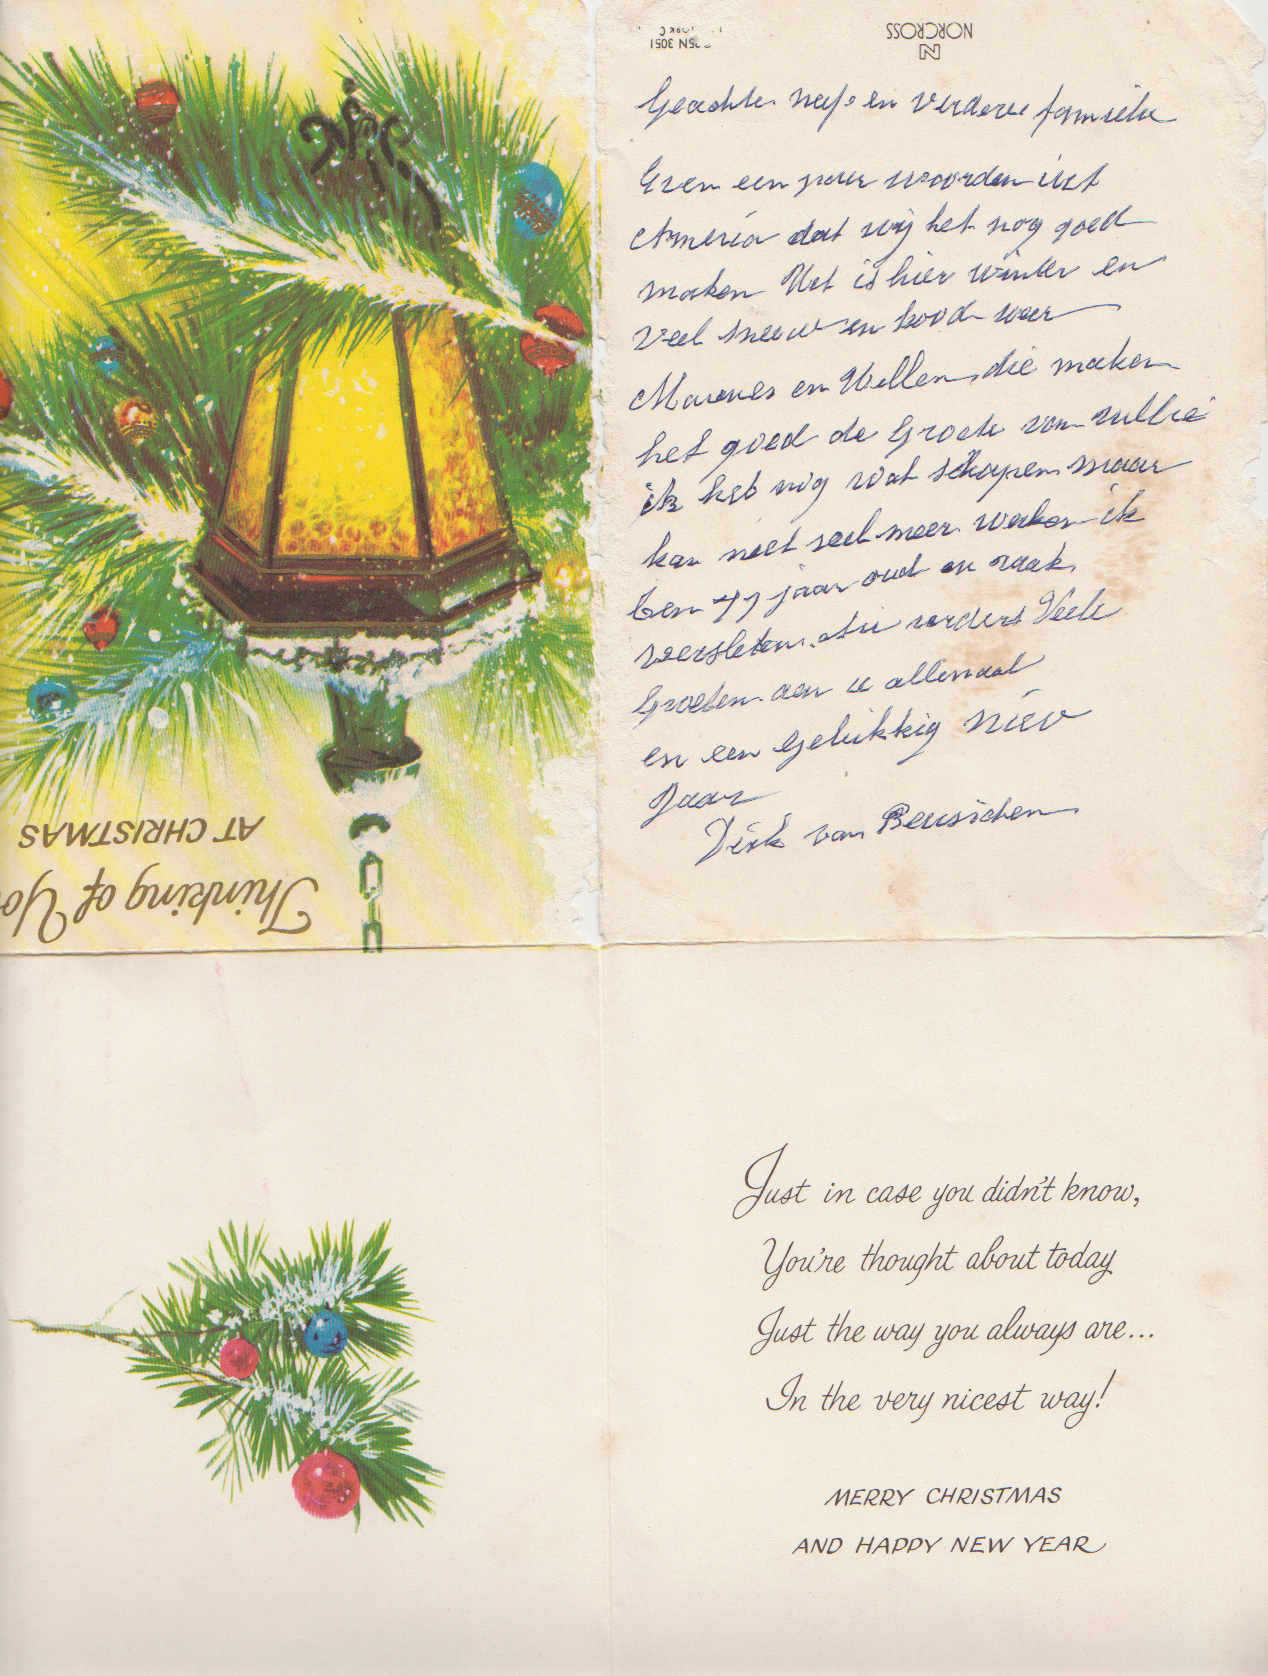 Thinking of Yo
AT CHRISTMAS
NORCROSS
N
5N 3051
Geachte neef en verdere familie
Even een paar woorden uit
America dat wij het nog goed
maken Het is hier winter en
veel sneeuw en koud weer
en Willem die maken
het goed de Groete van
ik heb nog wat schapen maar
kan niet veel meer werken ik
ben 77 jaar oud en raak
versleten. verders Veele
Groeten aan u allemaal
en een gelukkig niew
Jaar
Dirk van Beusichem
Just in case you didn't know,
You're thought about today
Just the way you always are...
In the very nicest way!
MERRY CHRISTMAS
AND HAPPY NEW YEAR